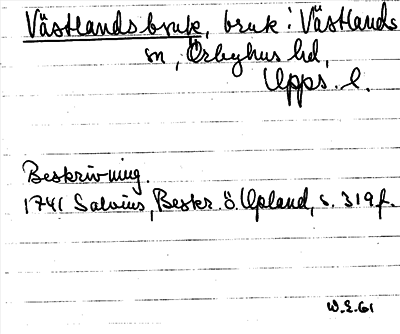 Västlands bruk, bruk i Västlands
sn, Örbyhus hd,
Upps. l.
Beskrivning.
1741 Salvius, Beskr. ö. Upland, s. 319 f.
W.E. 61